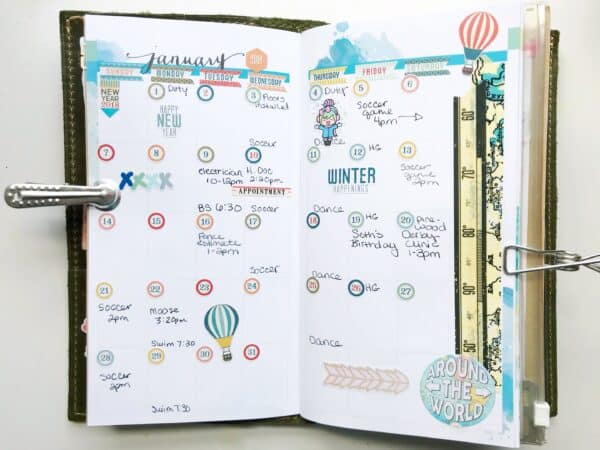 january
2018
SUNDAY MONDAY TUESDAY WEDNESDAY
THURSDAY FRIDAY SATURDAY
NEW
YEAR
2018
1 Duty
HAPPY
NEW
YEAR
2
3
installed
Soccer
4 Duty
Dance
5
Soccer
game
4pm
6
7
8
9
electrician
10-12pm
BS 6:30
10
H. Doc
2:20pm
APPOINTMENT
Soccer
11
Dance
12 HG
WINTER
HAPPENINGS
13
Soccer
2pm
14
15
16
Fence
estimate
1-3pm
17
Soccer
18
Dance
19 HG
Seth's
Birthday
20 Pine-
wood
Derby
Clinic
1-3pm
21
Soccer
2pm
22
Moose
3:20pm
Swim 7:30
23
24
25
Dance
26 HG
27
28
Soccer
2pm
29
Swim 7:30
30
31
AROUND
THE
WORLD
90
80
70
60
50